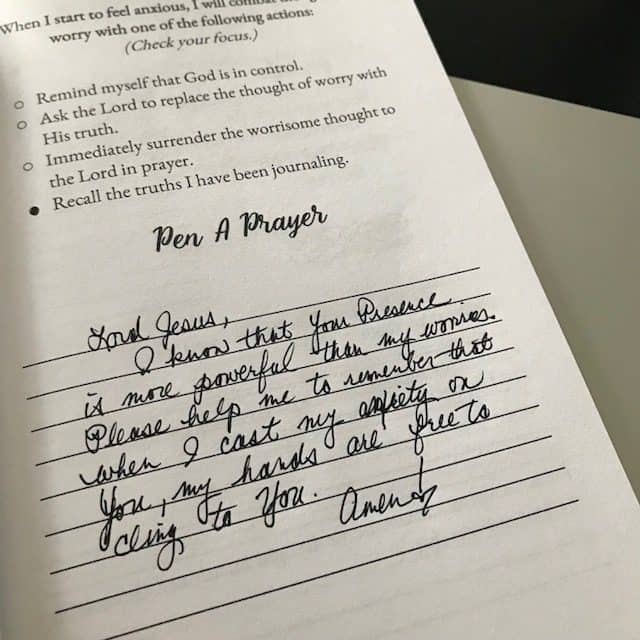 When I start to feel anxious, I will combat
worry with one of the following actions:
(Check your focus.)
○ Remind myself that God is in control.
○ Ask the Lord to replace the thought of worry with
His truth.
○ Immediately surrender the worrisome thought to
the Lord in prayer.
● Recall the truths I have been journaling.
Pen A Prayer
Lord Jesus,
I know that Your Presence
is more powerful than my worries.
Please help me to remember that
when I cast my anxiety on
You, my hands are free to
cling to You. Amen